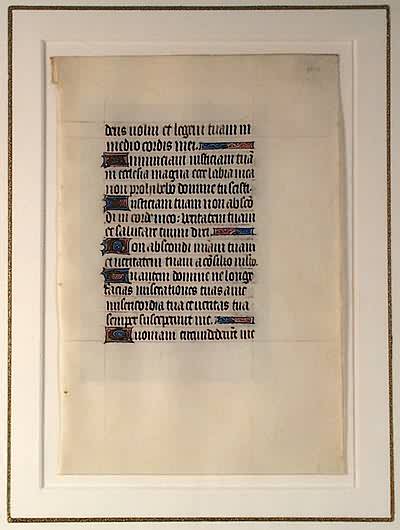 deus uolui et legem tuam in
medio cordis mei.
Annunciaui iusticiam tuā
in ecclesia magna ecce labia mea
non prohibebo domine tu scisti.
Iusticiam tuam non abscō
di in corde meo: ueritatem tuam
et salutare tuum dixi.
Non abscondi miām tuam
et ueritatem tuam a cōsilio m̄lto.
Tu autem domine ne longe
facias miserationes tuas a me
misericordia tua et ueritas tua
semper susceperunt me.
Quoniam circūdederūt me